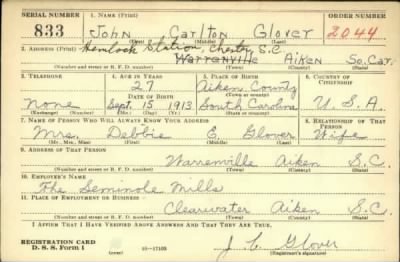 SERIAL NUMBER 1. NAME (Print) ORDER NUMBER
833 John Carlton Glover 2044
(First) (Middle) (Last)
2. ADDRESS (Print) Hemlock Station, Chester, S.C.
Warrenville Aiken So. Car.
(Number and street or R. F. D. number) (Town) (County) (State)
3. TELEPHONE 4. AGE IN YEARS 5. PLACE OF BIRTH 6. COUNTRY OF CITIZENSHIP
27 Aiken County
DATE OF BIRTH (Town or county)
None Sept. 15 1913 South Carolina U.S.A.
(Exchange) (Number) (Mo.) (Day) (Yr.) (State or country)
7. NAME OF PERSON WHO WILL ALWAYS KNOW YOUR ADDRESS 8. RELATIONSHIP OF THAT PERSON
Mrs. Debbie E. Glover Wife
(Mr., Mrs., Miss) (First) (Middle) (Last)
9. ADDRESS OF THAT PERSON
Warrenville Aiken S.C.
(Number and street or R. F. D. number) (Town) (County) (State)
10. EMPLOYER'S NAME
The Seminole Mills
11. PLACE OF EMPLOYMENT OR BUSINESS
Clearwater Aiken S.C.
(Number and street or R. F. D. number) (Town) (County) (State)
I AFFIRM THAT I HAVE VERIFIED ABOVE ANSWERS AND THAT THEY ARE TRUE.
REGISTRATION CARD
D. S. S. Form 1 16—17105 J. C. Glover
(Registrant's signature)